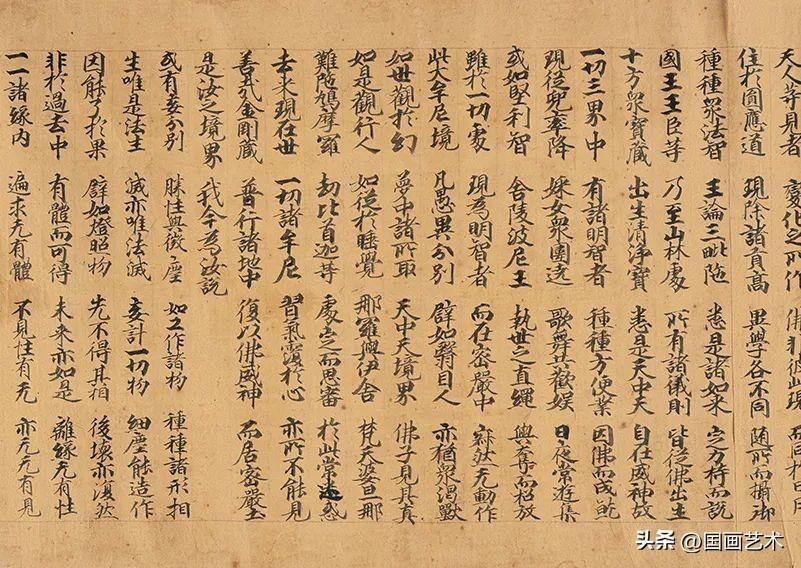 天人等見者 變化之所作 佛非彼此現
住於圓應道 現除諸貢高 異學各不同 随所而攝御
種種衆法智 王論三毗陁 悉是諸如來 定力持而說
國王王臣等 乃至山林處 所有諸儀則 皆從佛出生
十方衆寶藏 出生清淨寶 悉是天中天 自在威神故
一切三界中 有諸明智者 種種方便業 因佛而成就
現從兜率降 婇女衆圍遶 歌舞共歡娱 日夜常遊集
或如堅利智 舍陵波尼王 執世之直繩 與奪而招放
雖於一切處 現為明智者 而在密嚴中 寂然无動作
此大牟尼境 凡愚異分別 辟如翳目人 亦猶衆渴獸
如世觀於幻 夢中諸所取 天中天境界 佛子見其真
如是觀行人 如從於睡覺 那羅與伊舍 梵天娑旦那
難陁鳩摩羅 劫比首迦等 處定而思審 於此常迷惑
去來現在世 一切諸牟尼 習氣覆於心 亦所不能見
善哉金剛藏 普行諸地中 復以佛威神 而居密嚴土
是汝之境界 我今為汝說
或有妄分別 勝性與微塵 如工作諸物 種種諸形相
生唯是法生 滅亦唯法滅 妄計一切物 細塵能造作
因能了於果 辟如燈照物 先不得其相 後壞亦復然
非於過去中 有體而可得 未來亦如是 離緣无有性
一一諸緣內 遍求无有體 不見性有无 亦无无有見
头条 @国画艺术